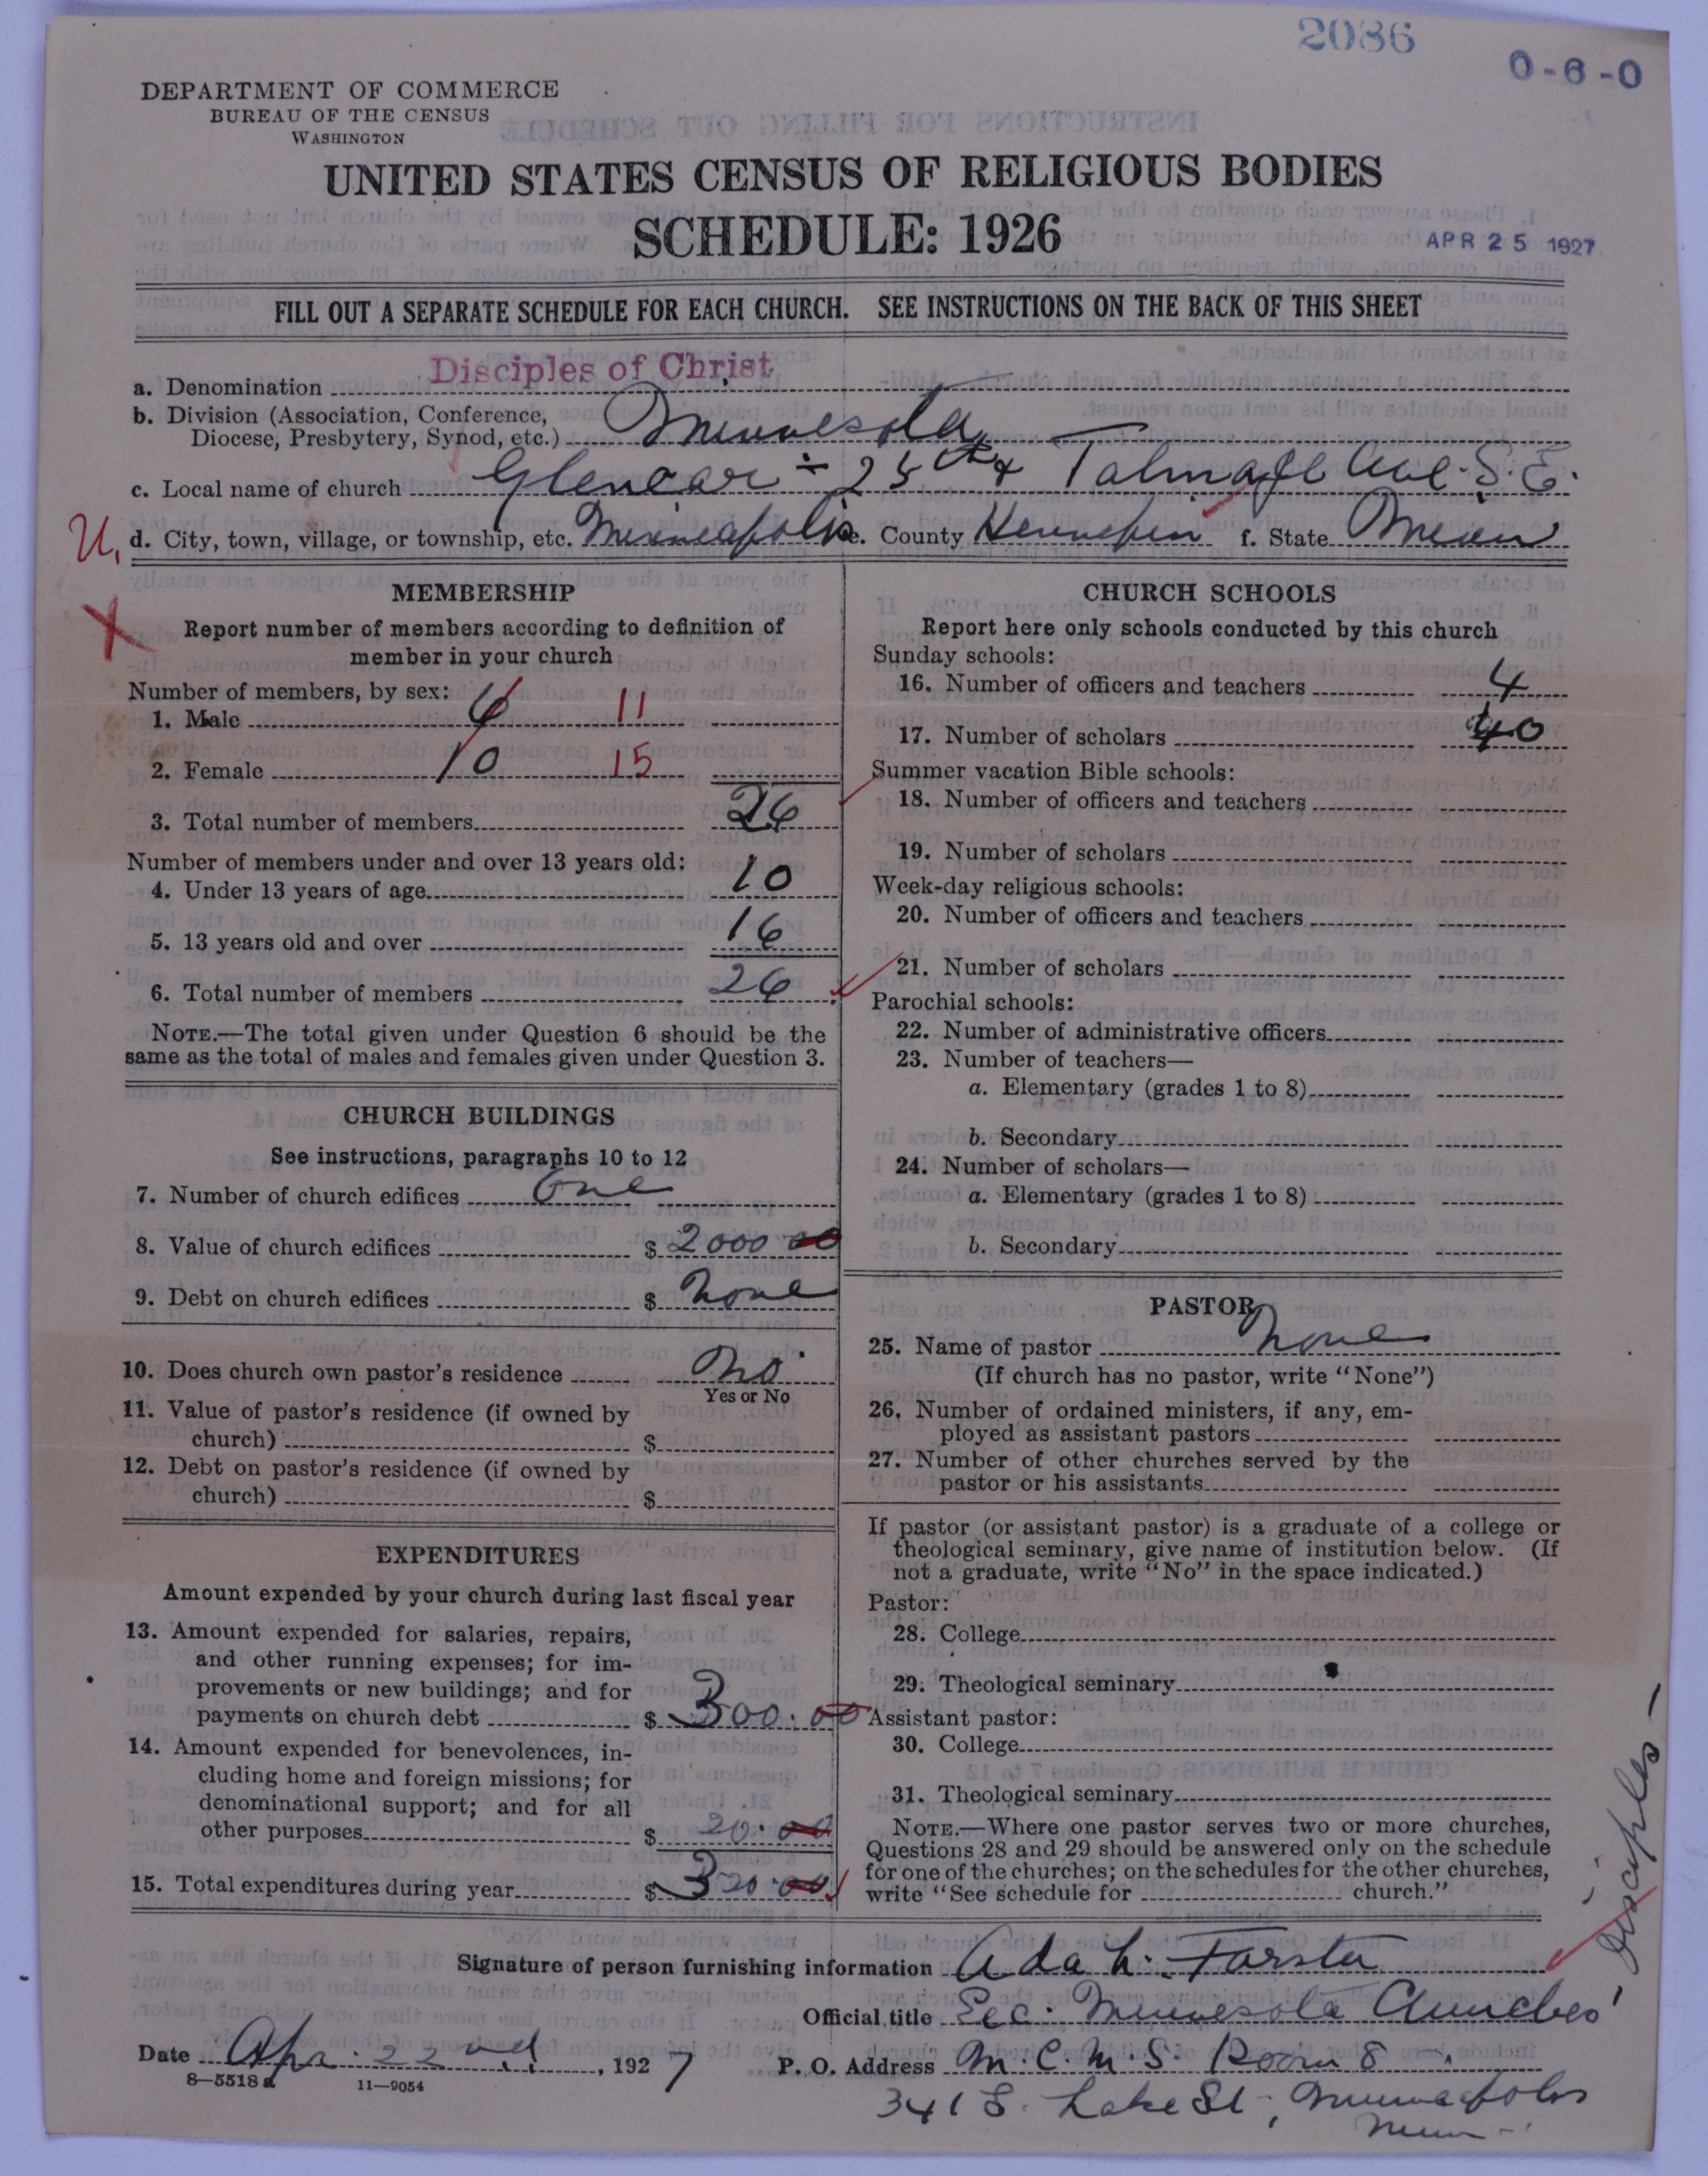 2086
0-6-0
DEPARTMENT OF COMMERCE
BUREAU OF THE CENSUS
WASHINGTON
UNITED STATES CENSUS OF RELIGIOUS BODIES
SCHEDULE: 1926
APR 25 1927
FILL OUT A SEPARATE SCHEDULE FOR EACH CHURCH. SEE INSTRUCTIONS ON THE BACK OF THIS SHEET
a. Denomination Disciples of Christ
b. Division (Association, Conference,
Diocese, Presbytery, Synod, etc.) Minnesota
c. Local name of church Glencar ÷ 25th & Talmage Ave. S. E.
U. d. City, town, village, or township, etc. Minneapolis e. County Hennepin f. State Minn
MEMBERSHIP
X Report number of members according to definition of
member in your church
Number of members, by sex:
1. Male 6 11
2. Female 10 15
3. Total number of members 26
Number of members under and over 13 years old:
4. Under 13 years of age 10
5. 13 years old and over 16
6. Total number of members 26
NOTE.—The total given under Question 6 should be the
same as the total of males and females given under Question 3.
CHURCH BUILDINGS
See instructions, paragraphs 10 to 12
7. Number of church edifices One
8. Value of church edifices $ 2000 00
9. Debt on church edifices $ None
10. Does church own pastor's residence No
Yes or No
11. Value of pastor's residence (if owned by
church) $
12. Debt on pastor's residence (if owned by
church) $
EXPENDITURES
Amount expended by your church during last fiscal year
13. Amount expended for salaries, repairs,
and other running expenses; for im-
provements or new buildings; and for
payments on church debt $ 300.00
14. Amount expended for benevolences, in-
cluding home and foreign missions; for
denominational support; and for all
other purposes $ 20.00
15. Total expenditures during year $ 320.00
CHURCH SCHOOLS
Report here only schools conducted by this church
Sunday schools:
16. Number of officers and teachers 4
17. Number of scholars 40
Summer vacation Bible schools:
18. Number of officers and teachers
19. Number of scholars
Week-day religious schools:
20. Number of officers and teachers
21. Number of scholars
Parochial schools:
22. Number of administrative officers
23. Number of teachers—
a. Elementary (grades 1 to 8)
b. Secondary
24. Number of scholars—
a. Elementary (grades 1 to 8)
b. Secondary
PASTOR
25. Name of pastor None
(If church has no pastor, write "None")
26. Number of ordained ministers, if any, em-
ployed as assistant pastors
27. Number of other churches served by the
pastor or his assistants
If pastor (or assistant pastor) is a graduate of a college or
theological seminary, give name of institution below. (If
not a graduate, write "No" in the space indicated.)
Pastor:
28. College
29. Theological seminary
Assistant pastor:
30. College
31. Theological seminary
NOTE.—Where one pastor serves two or more churches,
Questions 28 and 29 should be answered only on the schedule
for one of the churches; on the schedules for the other churches,
write "See schedule for church."
Signature of person furnishing information Ada L. Forster
Official title Sec. Minnesota Churches' Disciples -
Date Apr. 22nd, 1927 P. O. Address M. C. M. S. Room 8
8—5518a 11—9054
341 E. Lake St, Minneapolis
Minn -